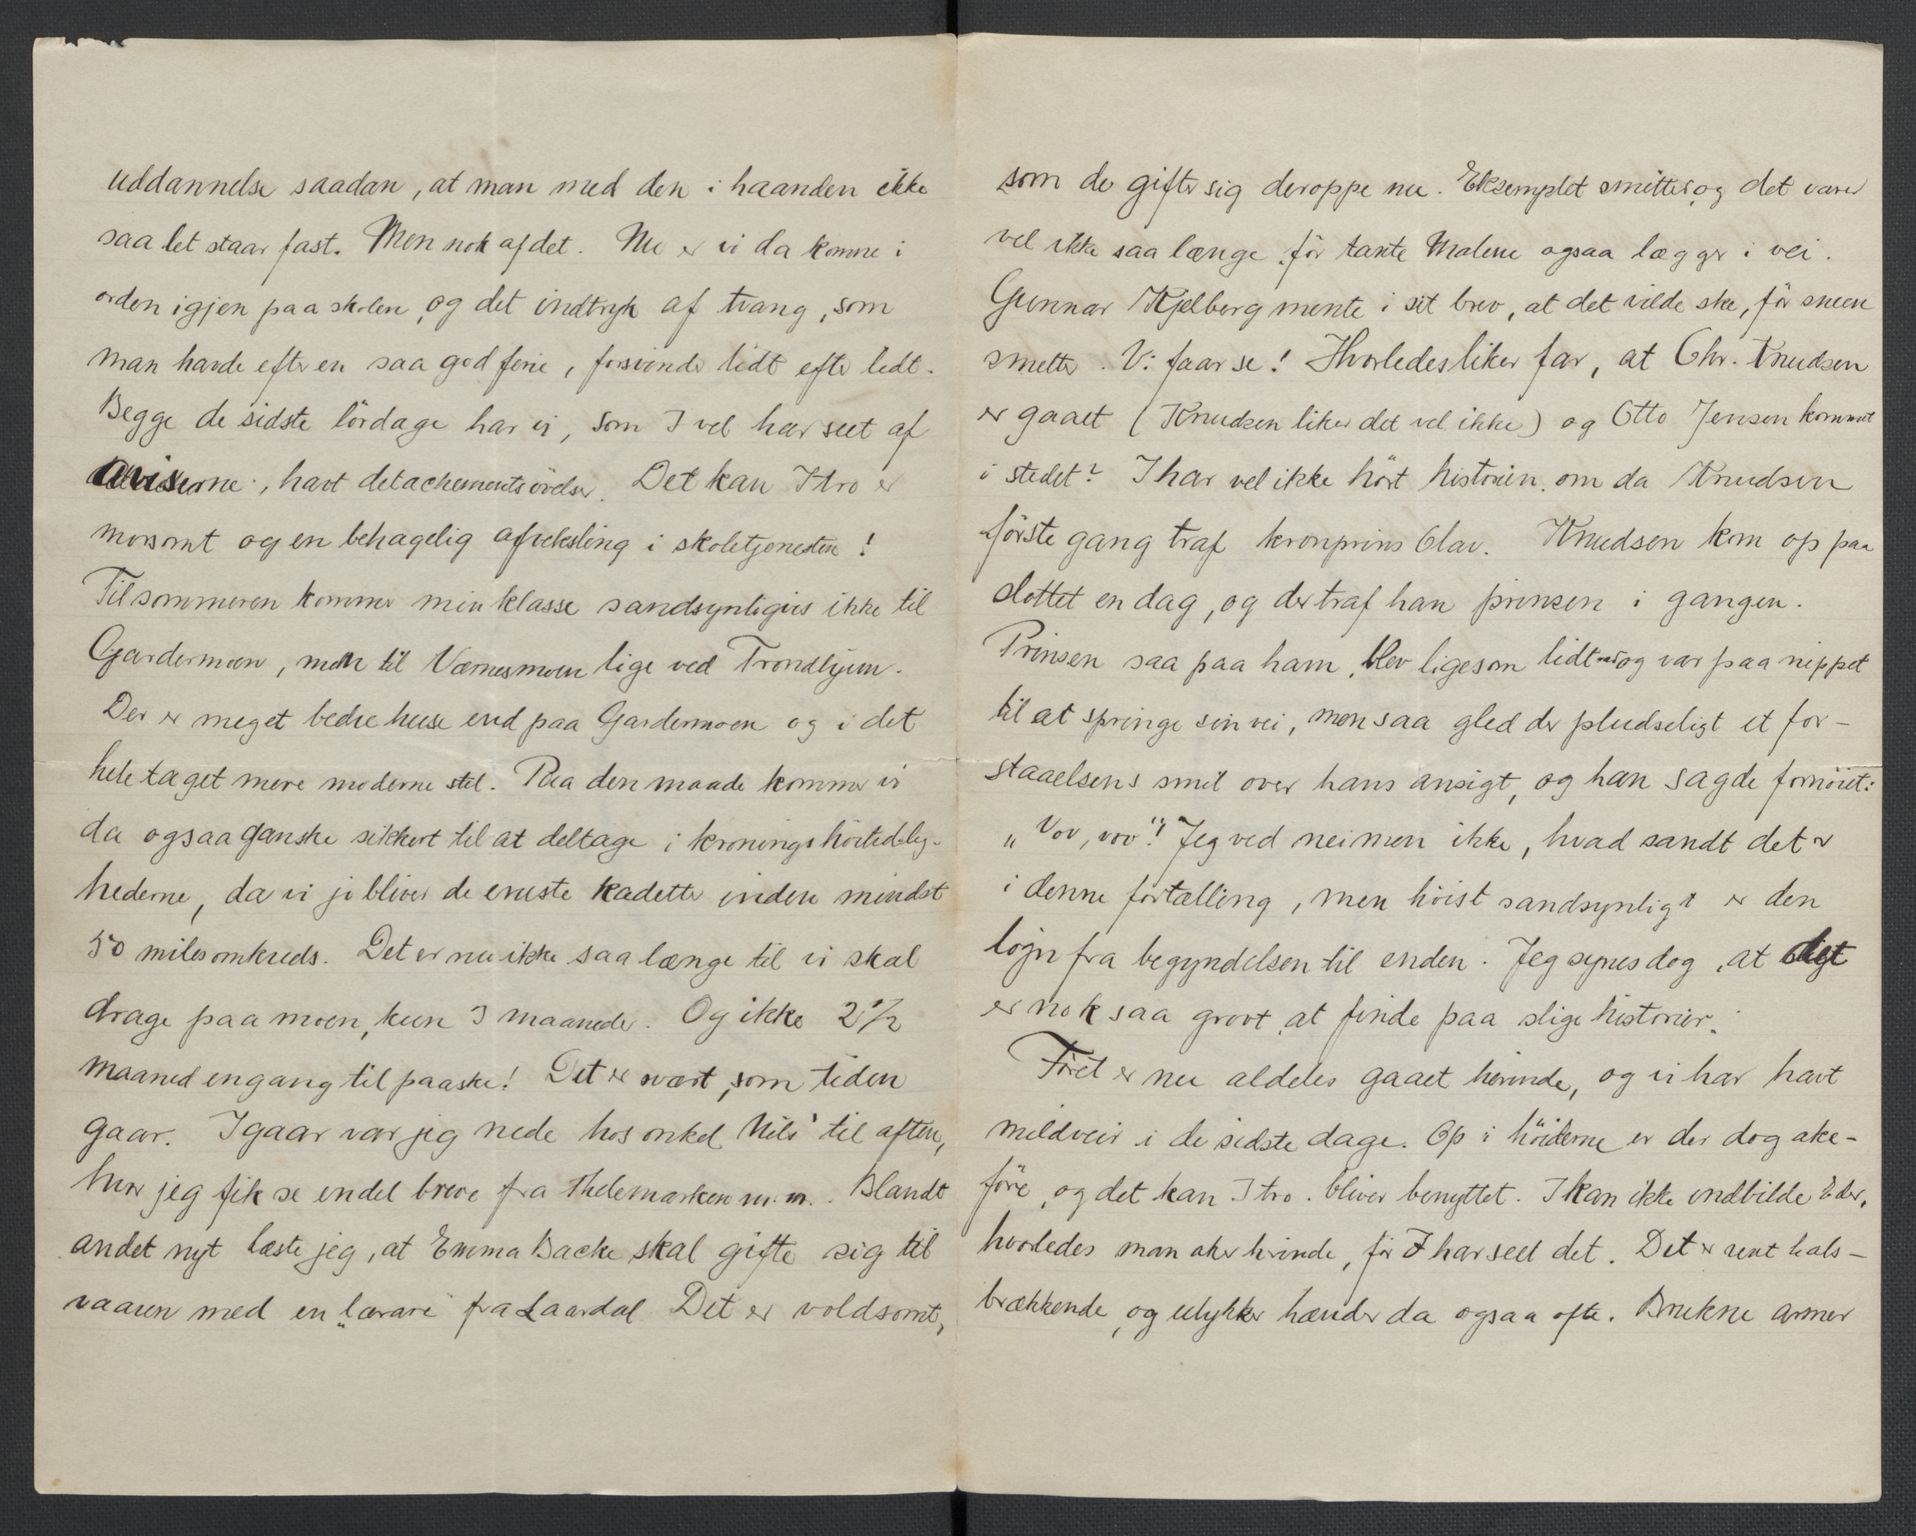 uddannelse saadan, at man med den i haanden ikke
saa let staar fast. Men nok af det. Nu er vi da komne i
orden igjen paa skolen, og det indtryk af tvang, som
man havde efter en saa god ferie, forsvinder lidt efter lidt.
Begge de sidste lördage har vi, som I vel har seet af
aviserne, havt detachementsövelser. Det kan I tro er
morsomt og en behagelig afveksling i skoletjenesten!
Til sommeren kommer min klasse sandsynligvis ikke til
Gardermoen, men til Værnesmoen lige ved Trondhjem.
Der er meget bedre huse end paa Gardermoen og i det
hele taget mere moderne stel. Paa den maade kommer vi
da ogsaa ganske sikkert til at deltage i kroningshöitidelig-
hederne, da vi jo bliver de eneste kadetter inden mindst
50 miles omkreds. Det er nu ikke saa længe til vi skal
drage paa moen, kun 3 maaneder. Og ikke 2 1/2
maaned engang til paaske! Det er svært, som tiden
gaar. Igaar var jeg nede hos onkel Nils' til aften,
hvor jeg fik se endel breve fra Thelemarken m.m. Blandt
andet nyt læste jeg, at Emma Backe skal gifte sig til
vaaren med en "lærari" fra Laardal. Det er voldsomt,
som de gifter sig deroppe nu. Eksemplet smitter, og det varer
vel ikke saa længe, för tante Malene ogsaa lægger i vei.
Gunnar Kjelberg mente i sit brev, at det vilde ske, för sneen
smelter. Vi faar se! Hvorledes liker far, at Chr. Knudsen
er gaaet (Knudsen liker det vel ikke) og Otto Jensen kommet
i stedet? I har vel ikke hört historien om da Knudsen
förste gang traf kronprins Olav. Knudsen kom op paa
slottet en dag, og der traf han prinsen i gangen.
Prinsen saa paa ham, blev ligesom lidt og var paa nippet
til at springe sin vei, men saa gled der pludseligt et for-
staaelsens smil over hans ansigt, og han sagde fornöiet:
„Vov, vov"! Jeg ved neimen ikke, hvad sandt det er
i denne fortælling, men höist sandsynligt er den
lögn fra begyndelsen til enden. Jeg synes dog, at det
er nok saa grovt at finde paa slige historier.
Föret er nu aldeles gaaet herinde, og vi har havt
mildveir i de sidste dage. Op i höiderne er der dog ake-
före, og det kan I tro bliver benyttet. I kan ikke indbilde Eder,
hvorledes man aker herinde, för I har seet det. Det er rent hals-
brækkende, og ulykker hænder da ogsaa ofte. Brukne armer